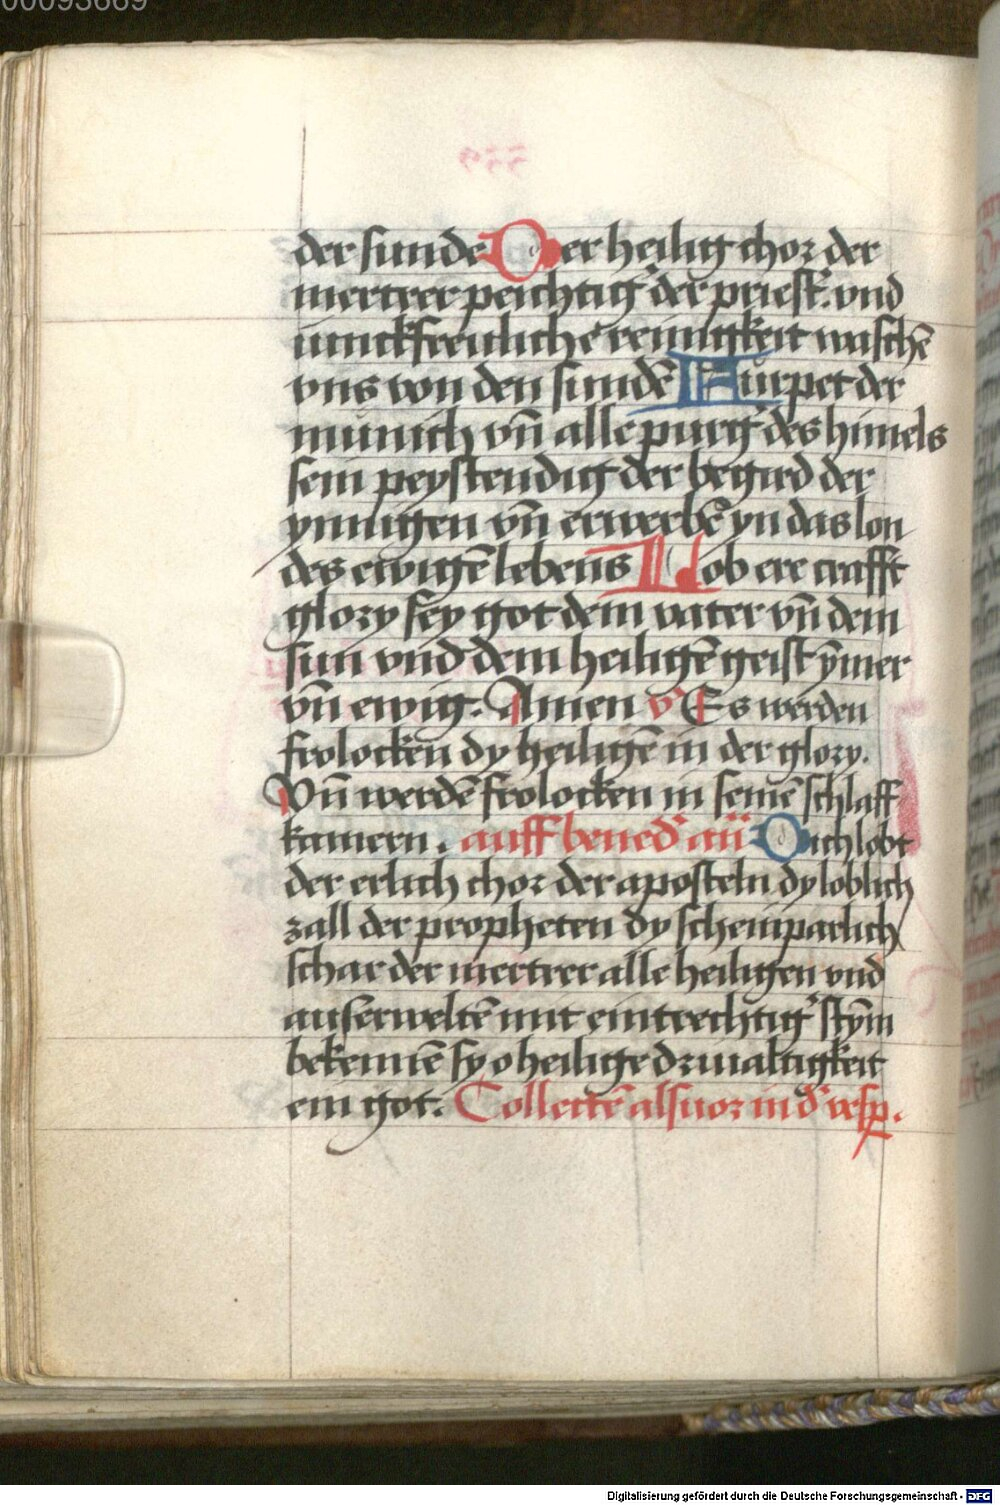 00093669
der sunde Der heilig chor der
mertrer peichtig᷑ der priest᷑. vnd
iunckfreuliche reinigkeit waschē
vns von den sundē Fürpet der
münich vn̄ alle purg᷑ des himels
sein peystendig der begird der
ynnigen vn̄ erwerbē yn das lon
des ewigē lebens Lob ere crafft
glory sey got dem vater vn̄ dem
sun vnd dem heiligē geist ym̄er
vn̄ ewig. Amen v᷑ Es werden
frolocken dy heiligē in der glory.
Vn̄ werdē frolocken in seinē schlaff
kamern. auff bened᷑ añ Dich lobt
der erlich chor der aposteln dy loblich
zall der propheten dy scheinparlich
schar der mertrer alle heiligen vnd
auserweltē mit eintrechtig᷑ stym̄
bekennē sy o heilige driualtigkeit
ein got. Collectē als vor in d᷑ vesp.
Digitalisierung gefördert durch die Deutsche Forschungsgemeinschaft - DFG